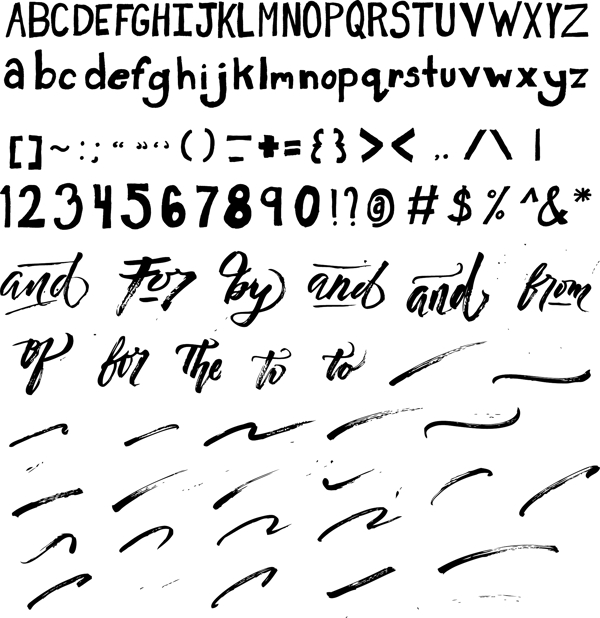 ABCDEFGHIJKLMNOPQRSTUVWXYZ
abcdefghijklmnopqrstuvwxyz
[]~:;“”‘’()_-+={}><,./\|
1234567890!?@#$%^&*
and For by and and from
of for The to to